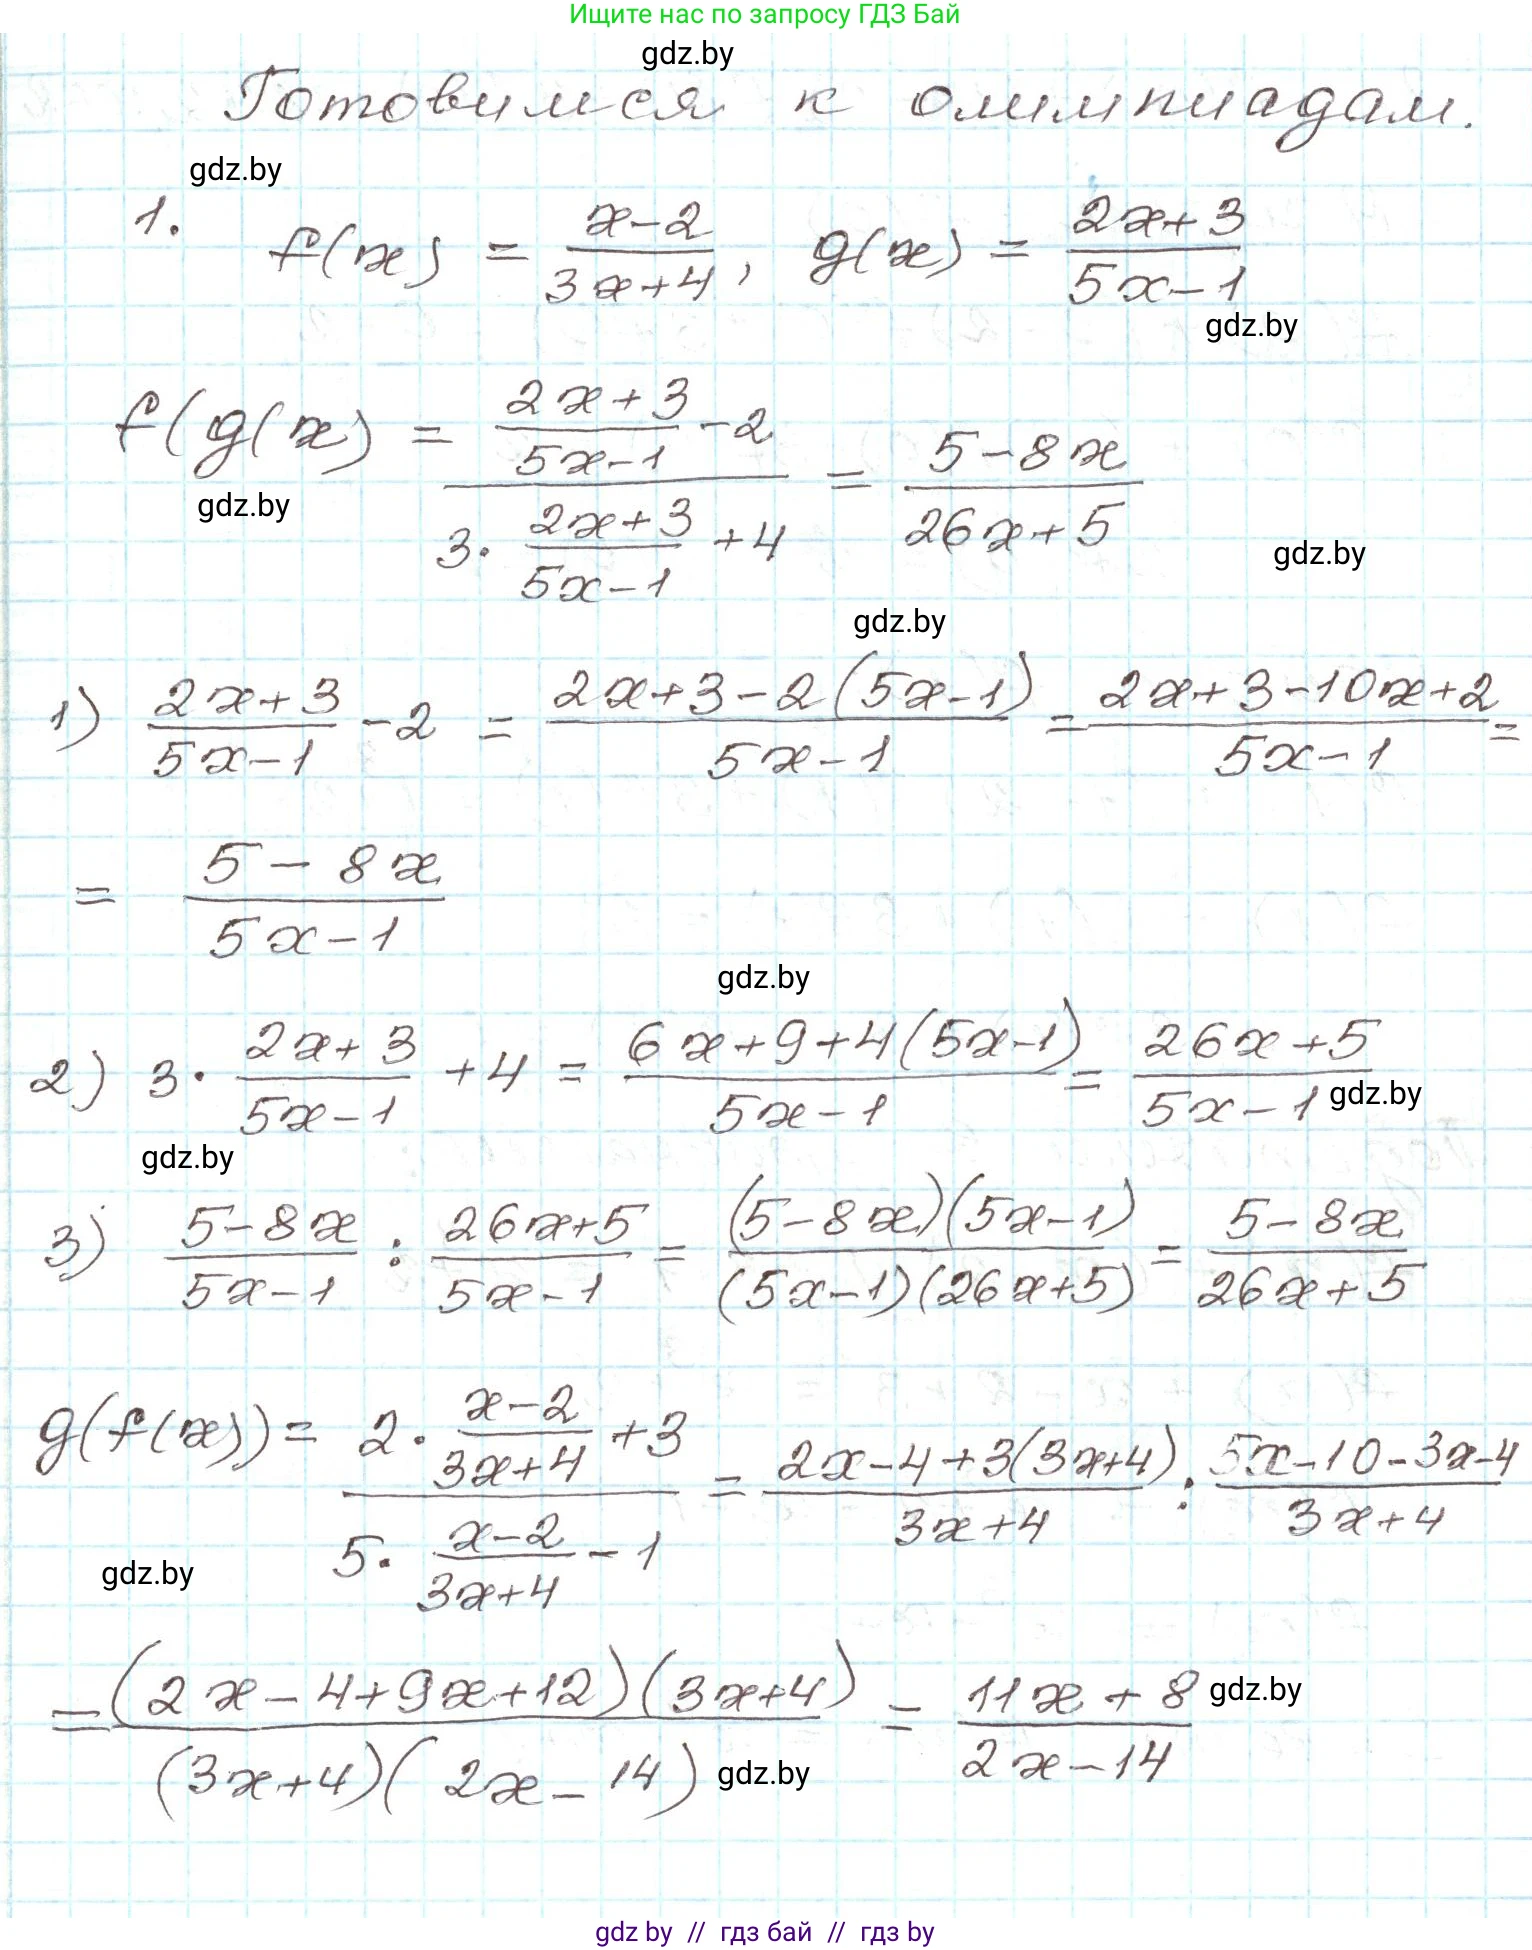 Ищите нас по запросу ГДЗ Бай
gdz.by
Готовимся к олимпиадам.
gdz.by
1. f(x) = (x-2)/(3x+4), g(x) = (2x+3)/(5x-1)
gdz.by
f(g(x) = ((2x+3)/(5x-1) - 2)/(3·(2x+3)/(5x-1) + 4) = (5-8x)/(26x+5)
gdz.by
gdz.by
gdz.by
1) (2x+3)/(5x-1) - 2 = (2x+3-2(5x-1))/(5x-1) = (2x+3-10x+2)/(5x-1) =
= (5-8x)/(5x-1)
gdz.by
2) 3·(2x+3)/(5x-1) + 4 = (6x+9+4(5x-1))/(5x-1) = (26x+5)/(5x-1)
gdz.by
gdz.by
3) (5-8x)/(5x-1) : (26x+5)/(5x-1) = ((5-8x)(5x-1))/((5x-1)(26x+5)) = (5-8x)/(26x+5)
g(f(x)) = (2·(x-2)/(3x+4) + 3)/(5·(x-2)/(3x+4) - 1) = (2x-4+3(3x+4))/(3x+4) : (5x-10-3x-4)/(3x+4)
gdz.by
= ((2x-4+9x+12)(3x+4))/((3x+4)(2x-14)) = (11x+8)/(2x-14)
gdz.by
gdz.by
gdz by // гдз бай // гдз by